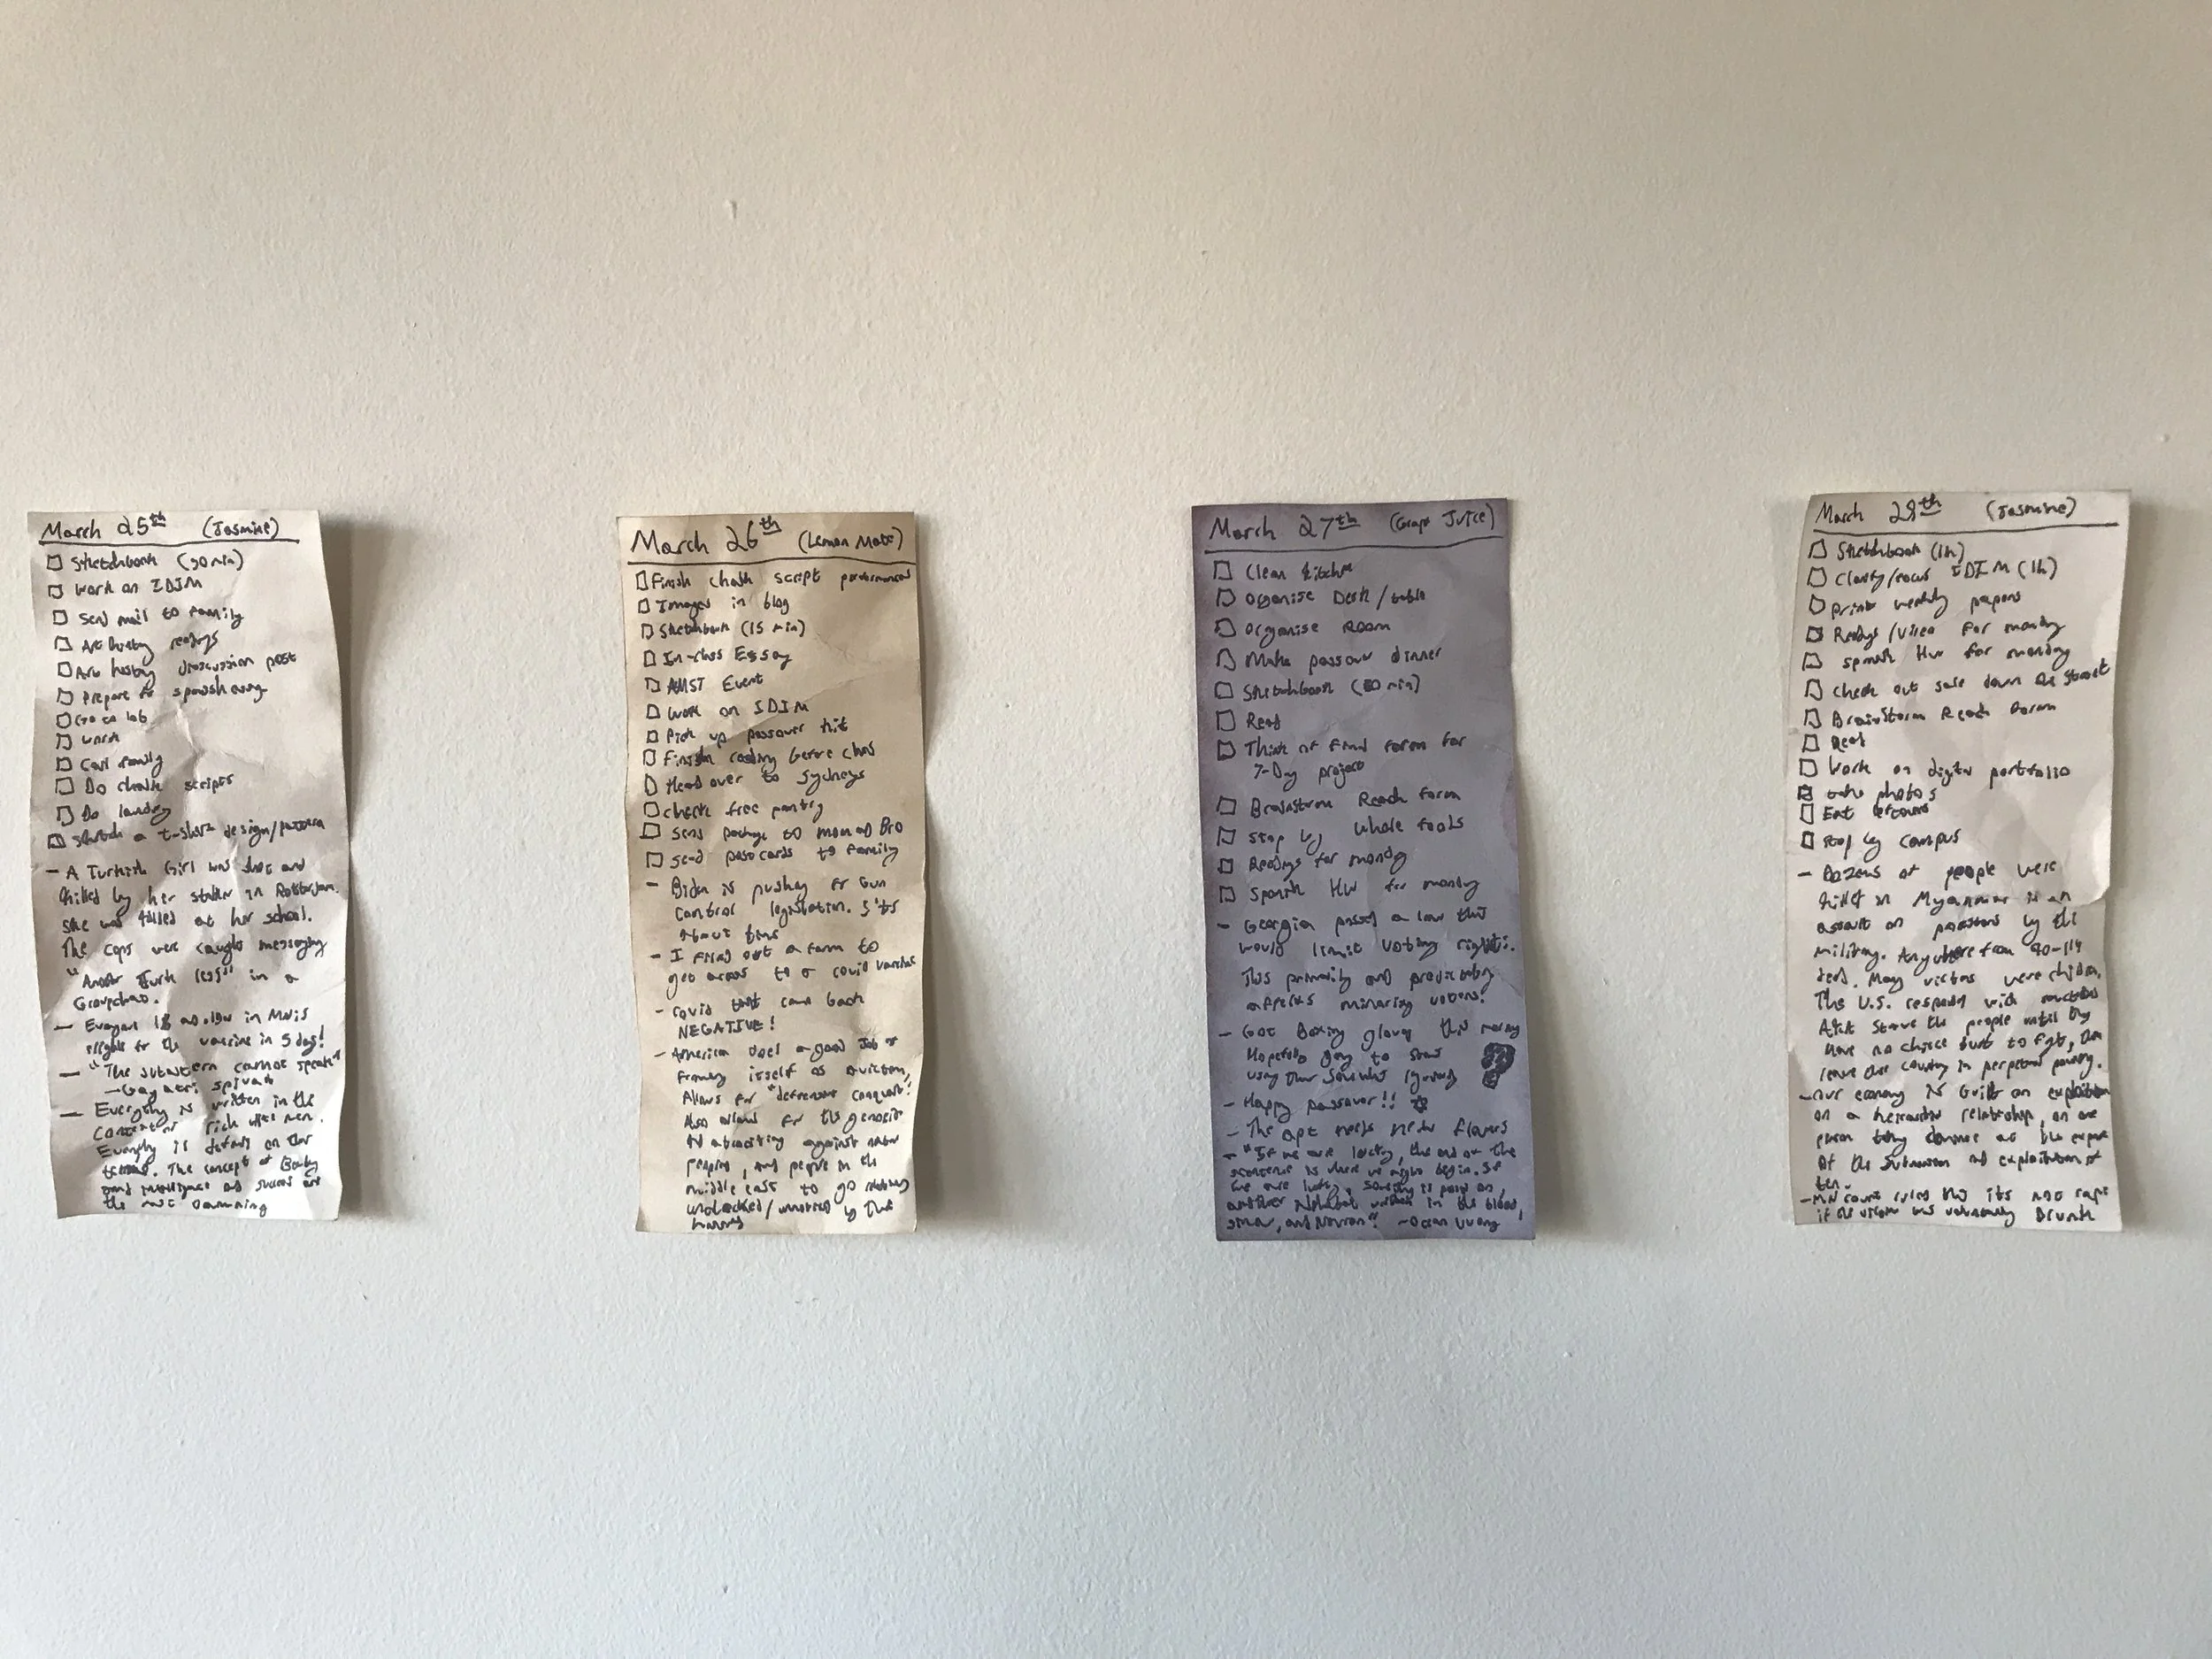 March 25th (Jasmine)
Sketchbook (30 min)
Work on IDIM
Send mail to family
Art history readings
Art history discussion post
Prepare for spanish essay
Go to lab
Work
Call family
Do chalk scripts
Do laundry
Sketch a t-shirt design/pattern
- A Turkish Girl was shot and
killed by her stalker in Rotterdam.
She was killed at her school.
The cops were caught messaging
"Another Turk less" in a
Groupchat.
- Everyone 18 and older in MN is
eligible for the vaccine in 5 days!
- "The subaltern cannot speak"
- Gayatri Spivak
- Everything is written in the
context of rich white men.
Everything is defined on their
terms. The concept of Beauty
and intelligence and success are
the most damning
March 26th (Lemon Mate)
Finish chalk script performances
Images in blog
Sketchbook (15 min)
In-class Essay
AMST Event
Work on IDIM
Pick up passover kit
Finish reading before class
Head over to Sydneys
check free pantry
Send package to mom and Bro
Send postcards to family
- Biden is pushing for Gun
control legislation. It's
About time
- I filled out a form to
get access to a covid vaccine
- covid test came back
NEGATIVE!
- America does a good Job of
framing itself as a victim,
Allows for "defensive conquest".
Also allows for the genocide
and atrocities against native
peoples, and people in the
middle east to go relatively
unchecked / unnoticed by the
March 27th (Grape Juice)
Clean kitchen
Organise Desk / table
Organise Room
Make passover dinner
Sketchbook (30 min)
Read
Think of final form for
7-Day project
Brainstorm Reach form
Stop by Whole foods
Readings for monday
Spanish HW for monday
- Georgia passed a law that
would limit voting rights.
This primarily and predictably
affects minority voters!
- Got Boxing gloves this morning
Hopefully going to start
using them
- Happy passover!!
- The apt needs new flowers
- "If we are lucky, the end of the
sentence is where we might begin. If
we are lucky, something is passed on,
another alphabet written in the blood,
sinew, and neuron" - Ocean Vuong
March 28th (Jasmine)
Sketchbook (1h)
Clarify/focus IDIM (1h)
Print weekly papers
Readings / video for monday
Spanish HW for monday
Check out sale down the street
Brainstorm Reach form
Read
Work on digital portfolio
take photos
Eat leftovers
Stop by campus
- Dozens of people were
killed in Myanmar in an
assault on protestors by the
military. Anywhere from 90-114
dead. Many victims were children.
The U.S. responds with sanctions
starve the people until they
have no choice but to fight, then
leave the country in perpetual poverty.
- Our economy is built on exploitation
on a hierarchy relationship, on one
person being dominant at the expense
of the submission and exploitation of
ten.
- MN court rules that its not rape
if the victim was voluntarily Drunk